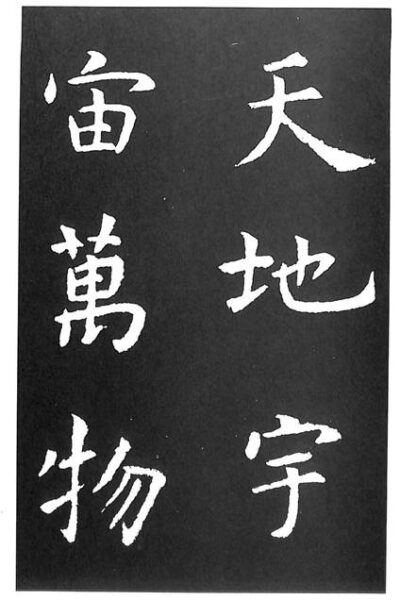 天地宇
宙萬物